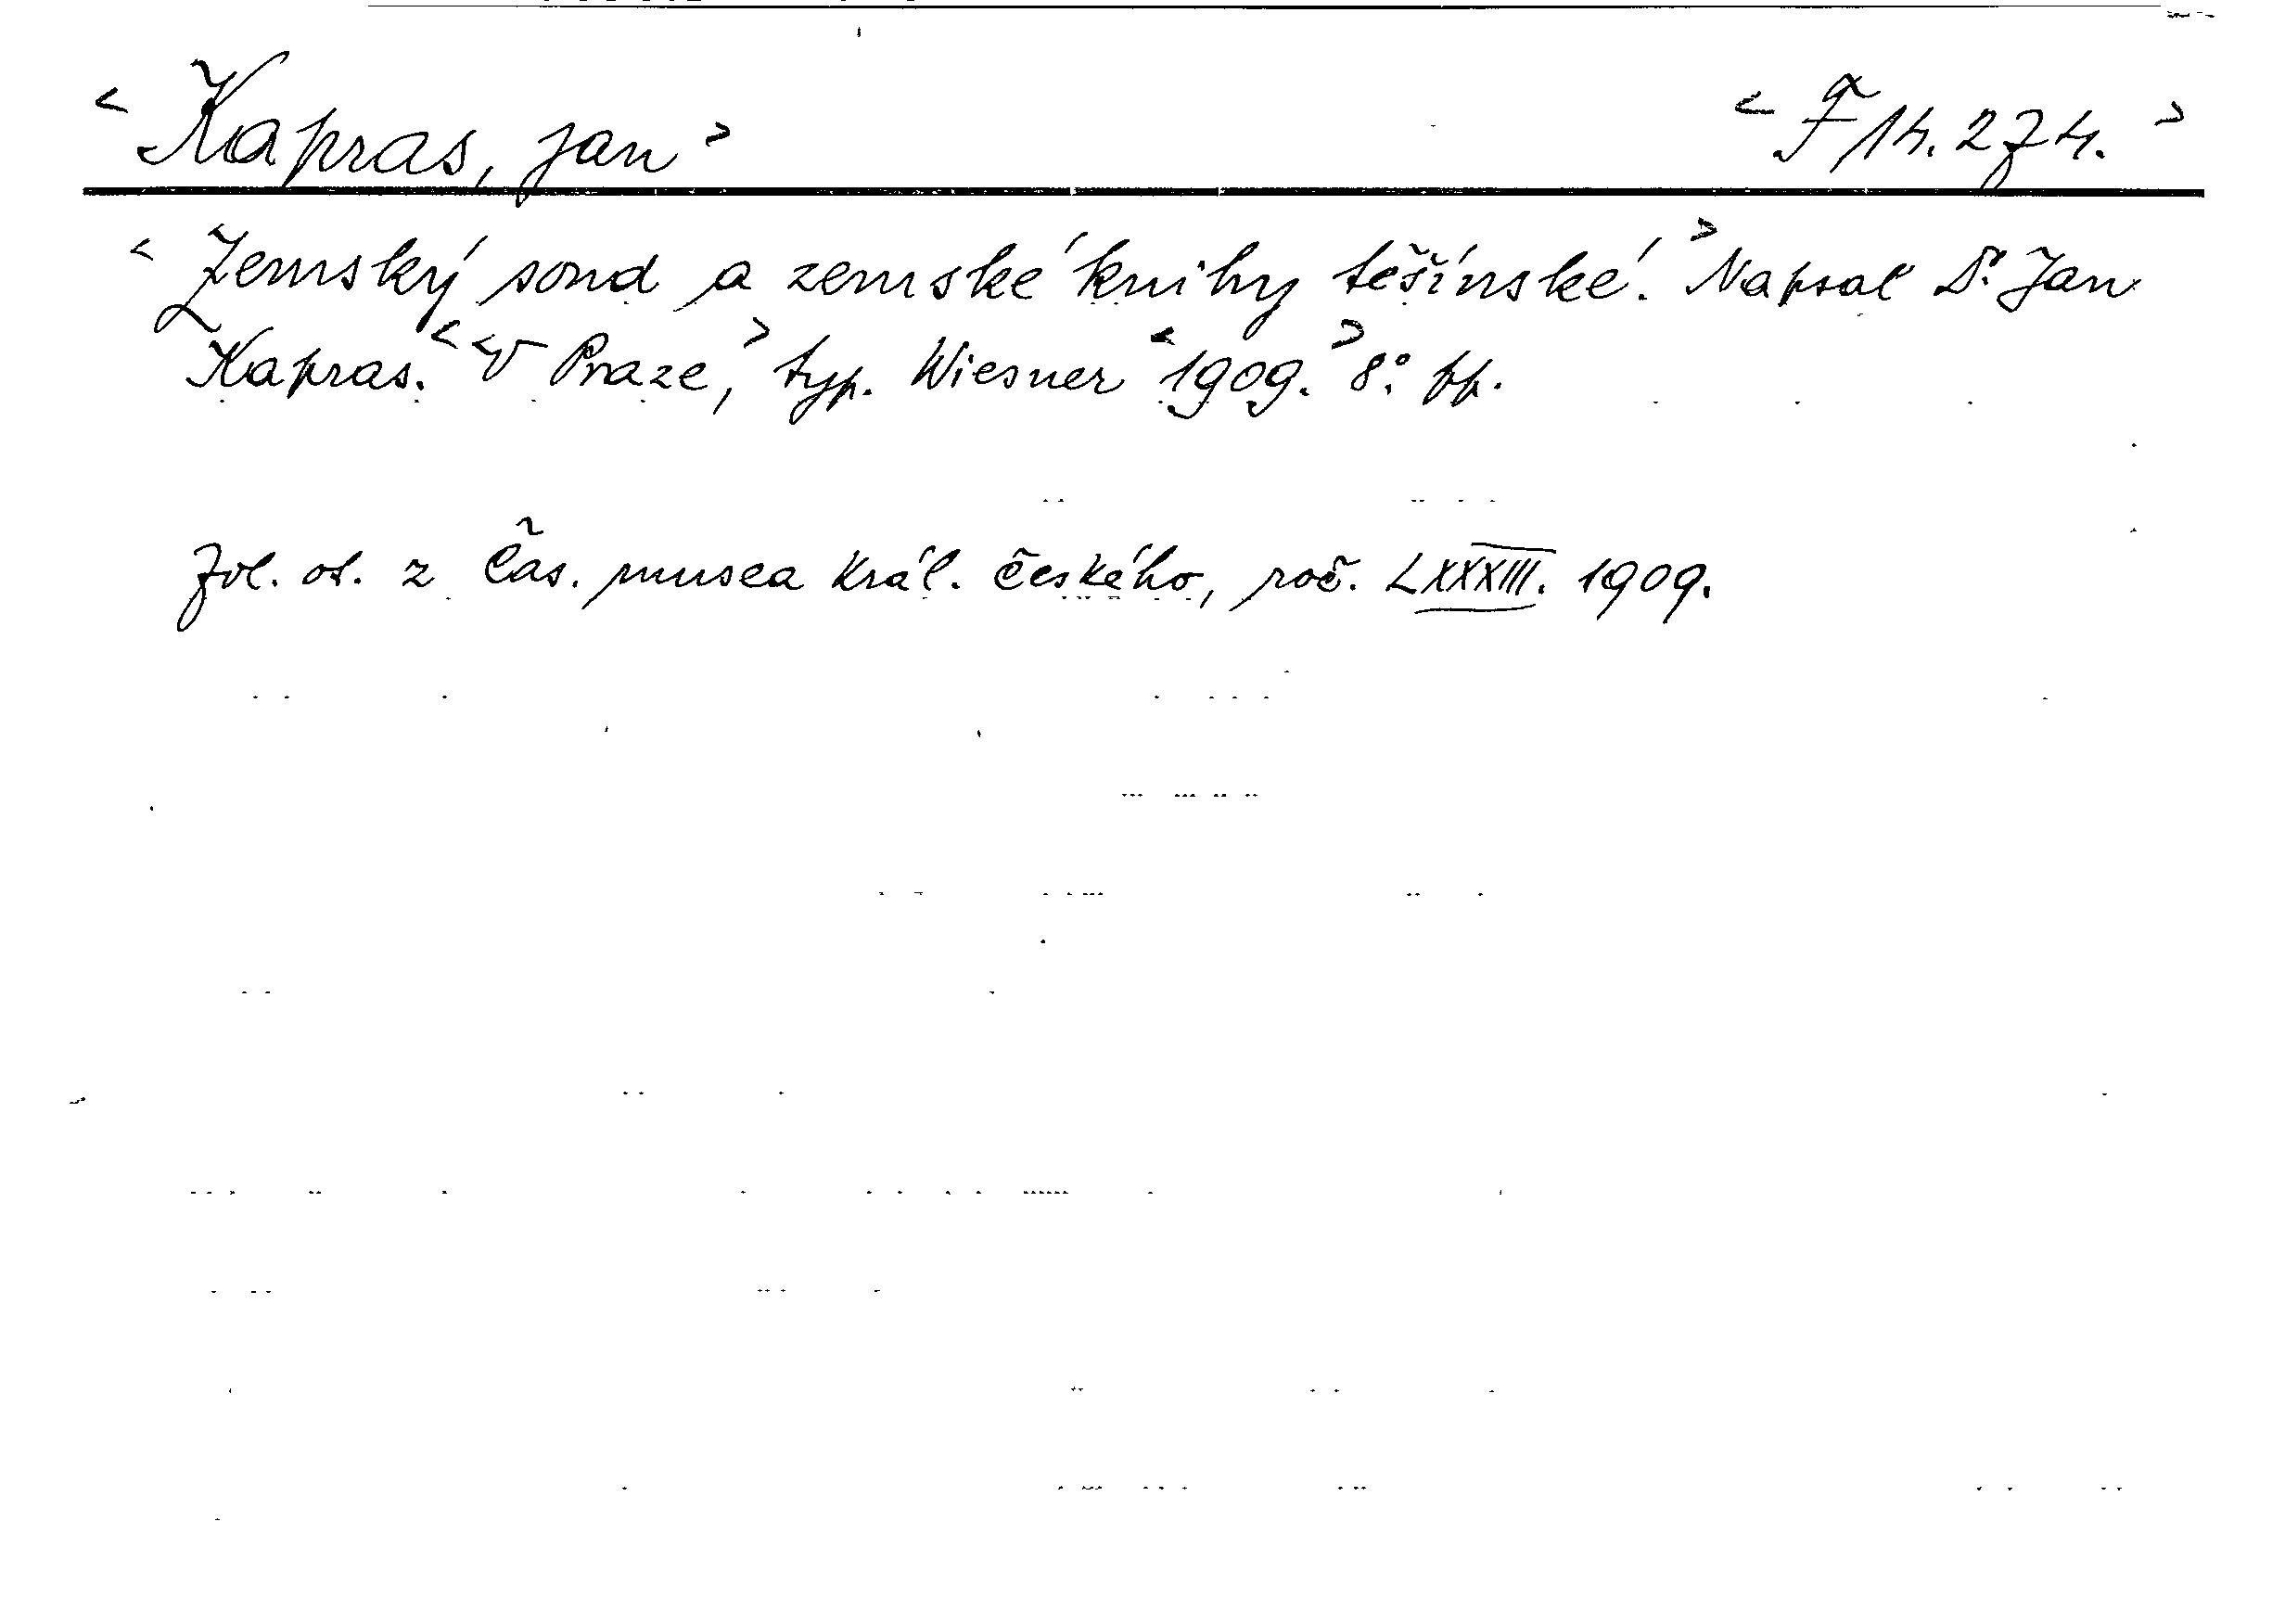 <Kapras, Jan> <F 14.274.>
<Zemský soud a zemské knihy těšínské.> Napsal Dr. Jan
Kapras. <<V Praze,> typ. Wiesner <1909.> 8.° pp.
Zvl. ot. z Čas. musea král. českého, roč. LXXXIII. 1909.